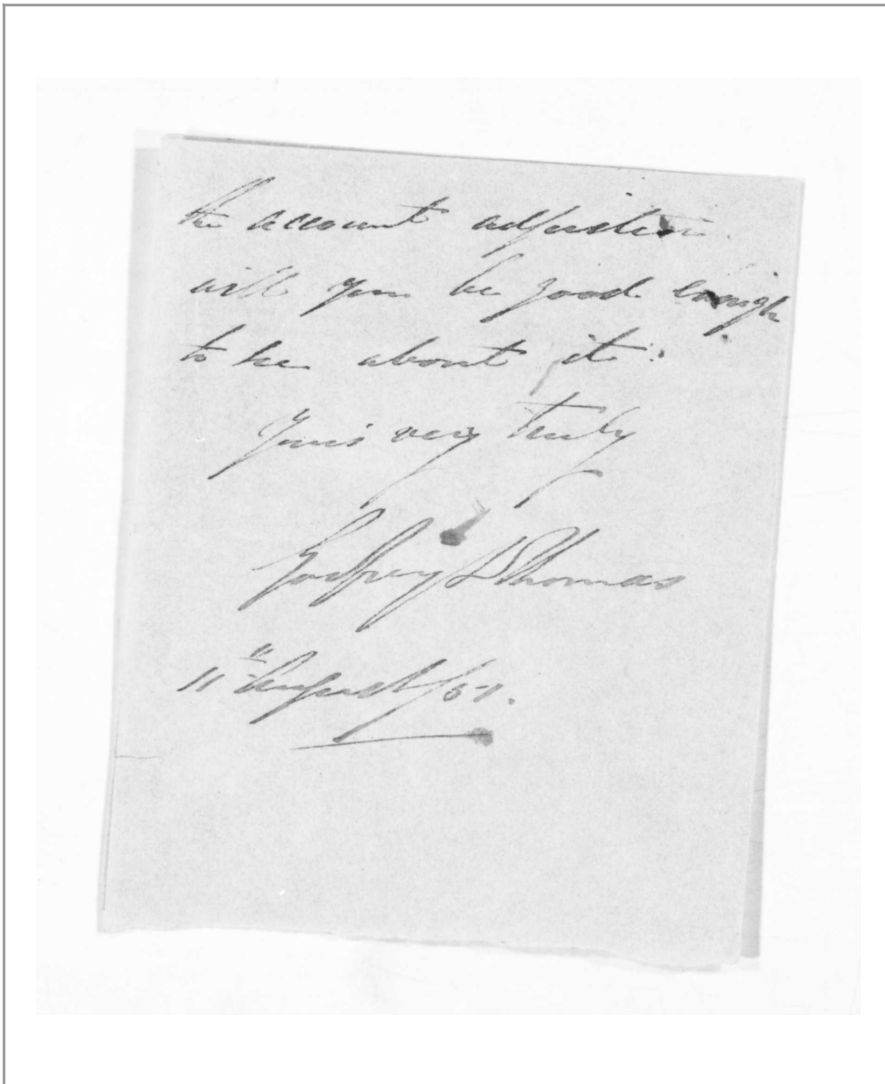 the account adjusted
will you be good enough
to see about it.
Yours very truly
Godfrey Thomas
11th August/51.